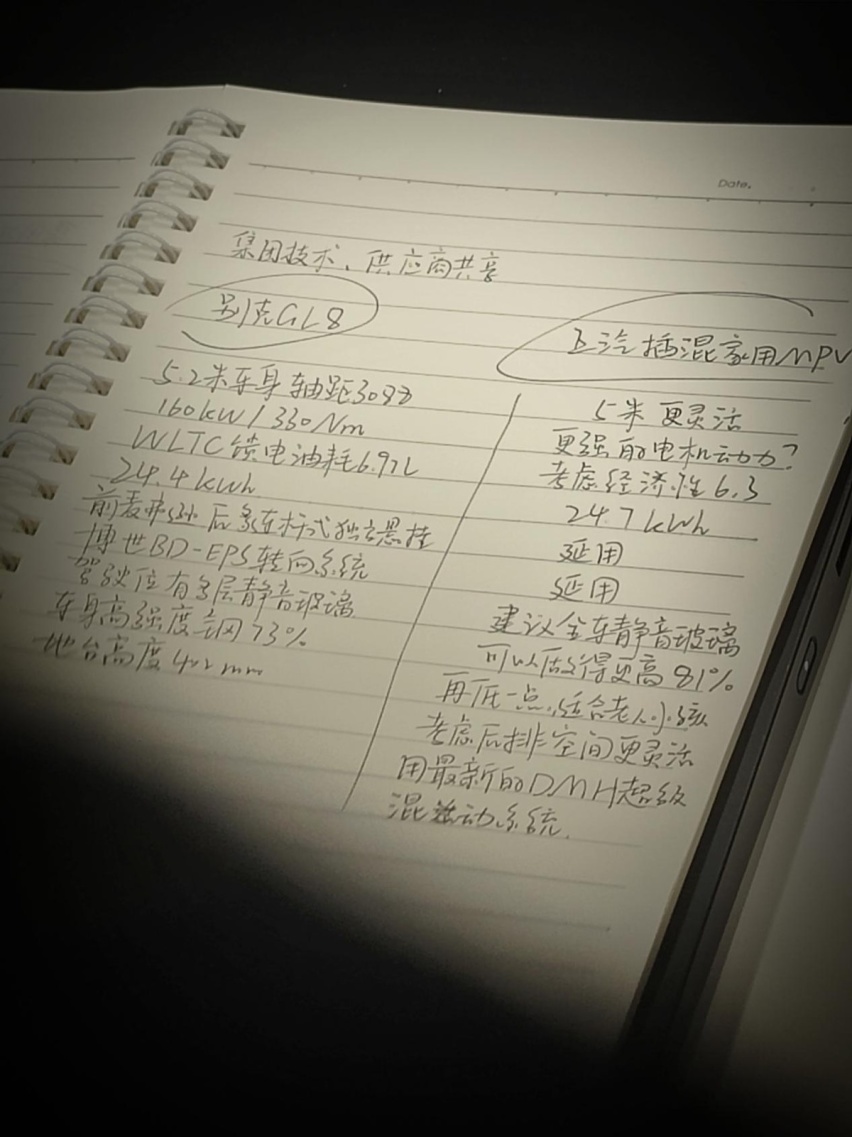 Date.
集团技术、供应商共享
别克GL8
上汽插混家用MPV
5.2米车身 轴距3088
160kW/330Nm
WLTC馈电油耗6.97L
24.4kWh
前麦弗逊后多连杆式独立悬挂
博世BD-EPS转向系统
驾驶位有多层静音玻璃
车身高强度钢73%
地台高度402mm
5米 更灵活
更强的电机动力?
考虑经济性6.3
24.7kWh
延用
延用
建议全车静音玻璃
可以做得更高81%
再低一点,适合老人小孩
考虑后排空间更灵活
用最新的DMH超级
混动系统.